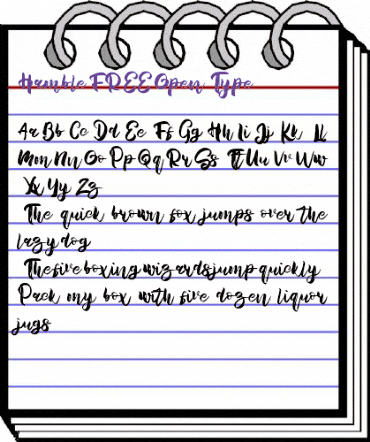 Humble FREE Open Type
Aa Bb Cc Dd Ee Ff Gg Hh Ii Jj Kk Ll
Mm Nn Oo Pp Qq Rr Ss Tt Uu Vv Ww
Xx Yy Zz
The quick brown fox jumps over the
lazy dog
The five boxing wizards jump quickly
Pack my box with five dozen liquor
jugs